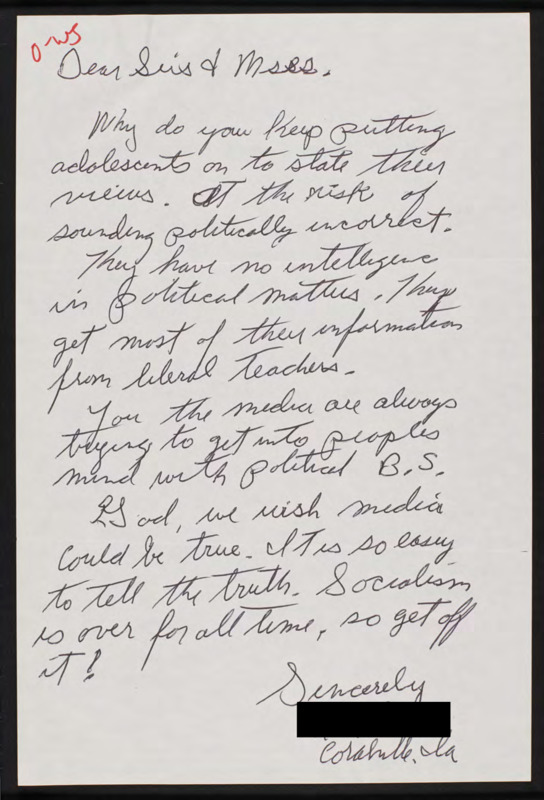 Dear Sirs & Mses.
Why do you keep putting
adolescents on to state their
views. At the risk of
sounding politically incorrect.
They have no intelligence
in political matters. They
get most of their information
from liberal teachers.
You the media are always
trying to get into peoples
mind with political B.S.
God, we wish media
could be true. It is so easy
to tell the truth. Socialism
is over for all time, so get off
it!
Sincerely
Coralville, Ia